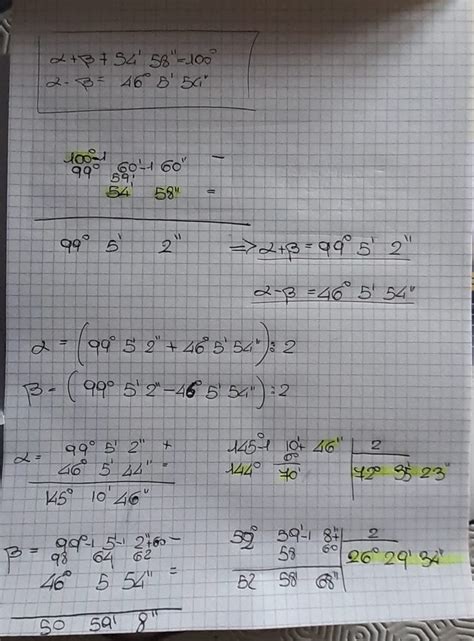 α+β+54' 58"=100°
α-β= 46° 5' 54"
100°-1 60'-1 60" -
99° 59'
54' 58" =
99° 5' 2" => α+β=99° 5' 2"
α-β=46° 5' 54"
α = (99° 5' 2" + 46° 5' 54") : 2
β = (99° 5' 2" - 46° 5' 54") : 2
α = 99° 5' 2" +
46° 5' 44" =
145° 10' 46"
145°-1 10'+ 46" 2
60'
144° 70' 72° 35' 23"
β = 99°-1 5'-1 2"+60 -
98 64 62
46° 5 54" =
50 59' 8"
52° 59'-1 8"+ 2
58 60 26° 29' 34"
52 58' 68"